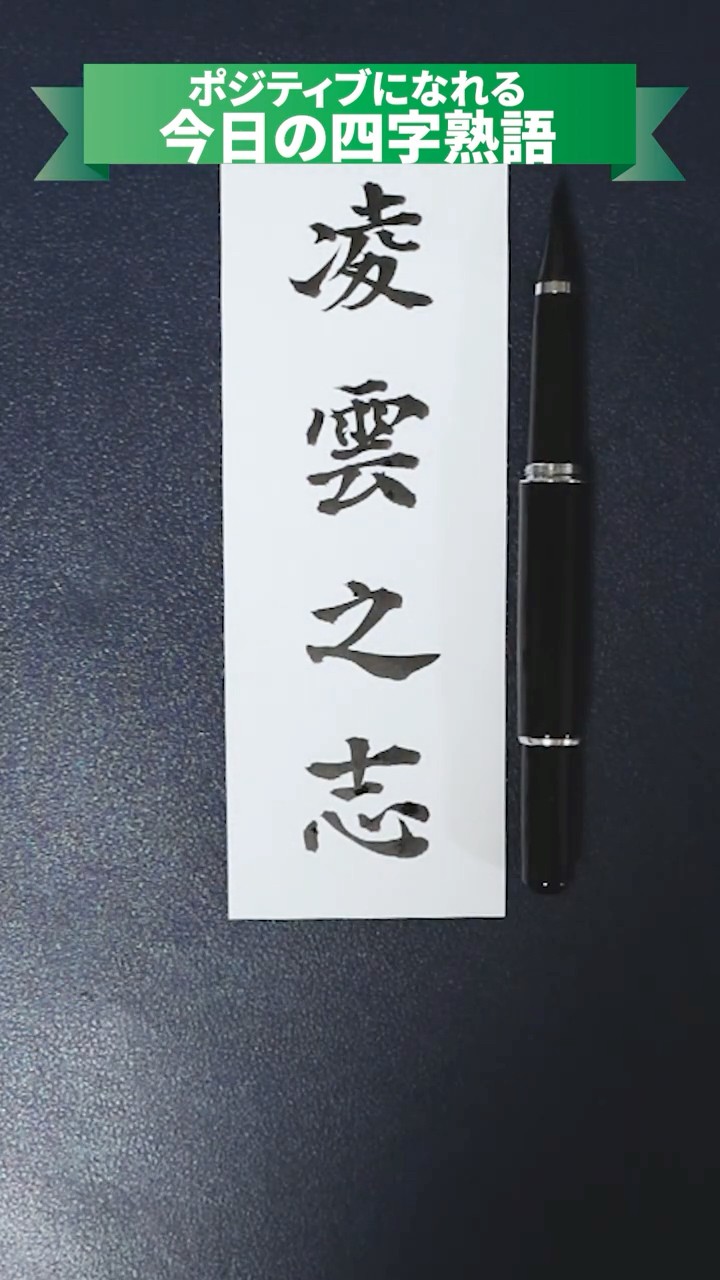 ポジティブになれる
今日の四字熟語
凌雲之志